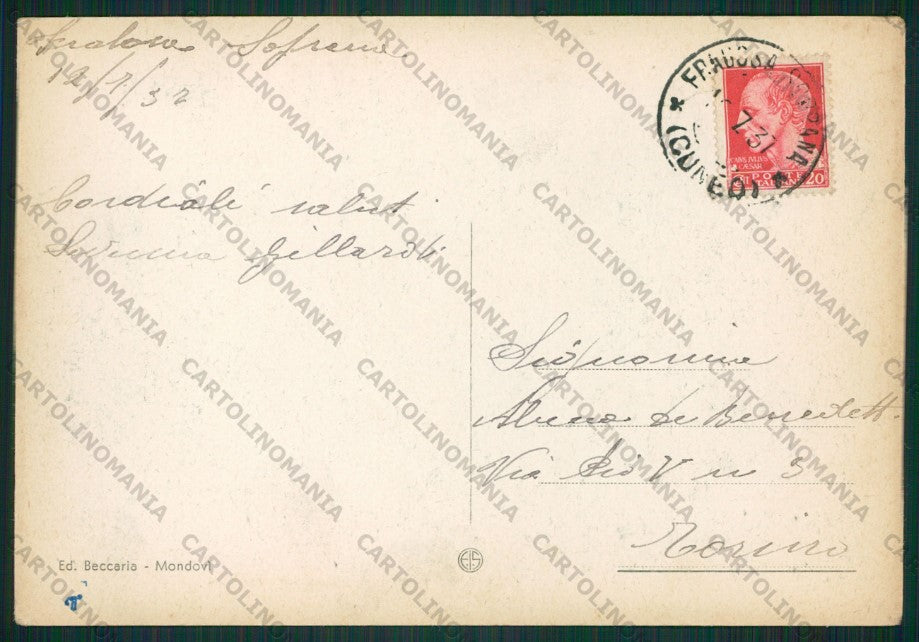 Frabosa Soprana
12/7/37
Cordiali saluti
Gillardi
FRABOSA SOPRANA
7.37
(CUNEO)
CAIVS IVLIVS
CAESAR
POSTE
ITALIANE
20
Signorina
de Benedetti
Via Pio V n 3
Torino
Ed. Beccaria - Mondovì
CARTOLINOMANIA